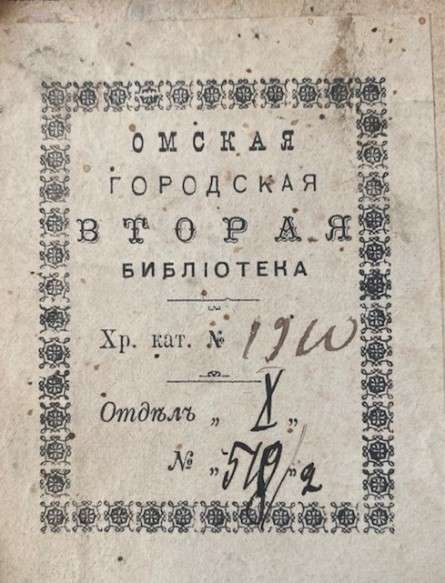 ОМСКАЯ
ГОРОДСКАЯ
ВТОРАЯ
БИБЛІОТЕКА
Хр. кат. № 1910
Отдѣлъ „ X „
№ „ 518/2